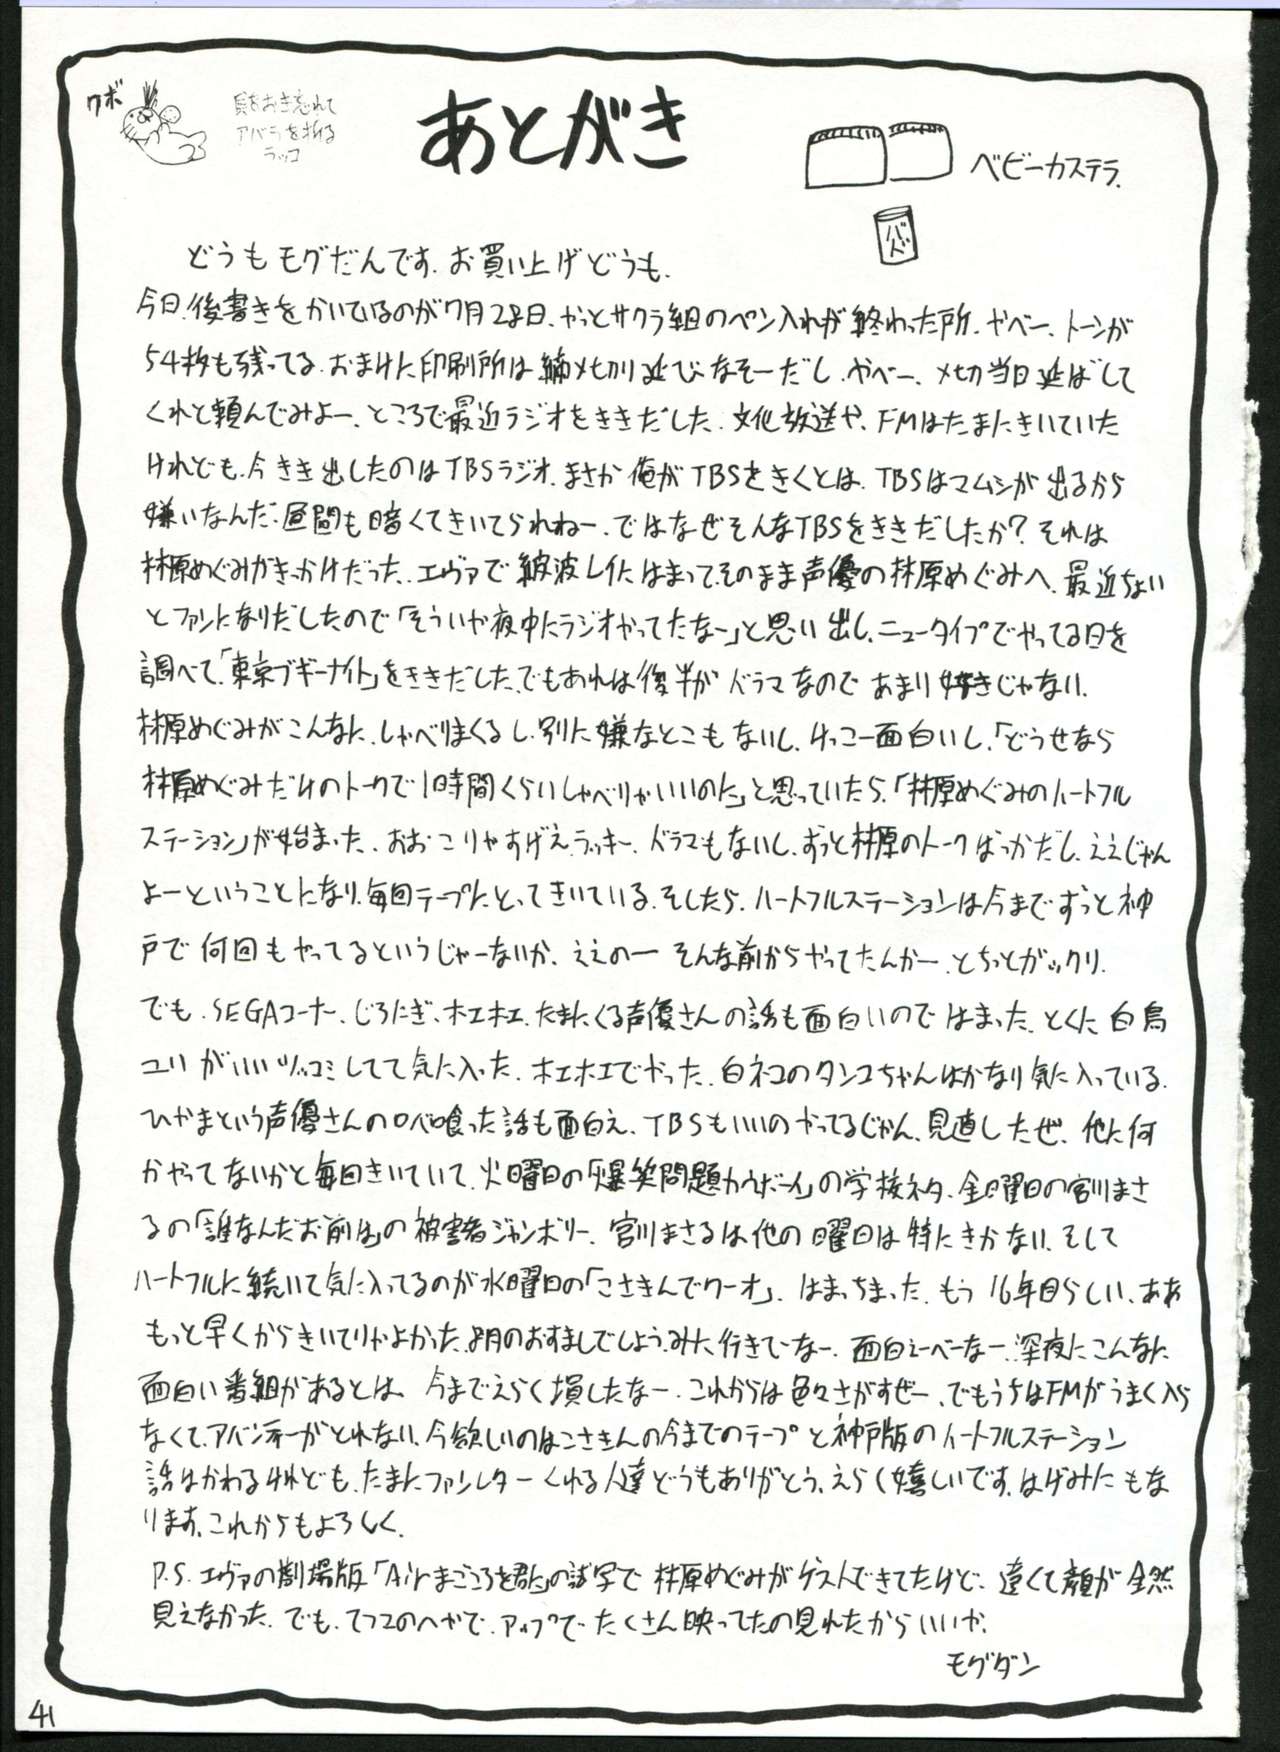 クボ
貝をおき忘れて
アバラを折る
ラッコ
あとがき
ベビーカステラ.
どうもモグだんです.お買い上げどうも.
今日.後書きをかいているのが7月28日.やっとサクラ組のペン入れが終わった所.やべー.トーンが
54枚も残ってる.おまけに印刷所は〆切り延びなそーだし.やべー.〆切当日延ばして
くれと頼んでみよー.ところで最近ラジオをききだした.文化放送や.FMはたまにきいていた
けれども.今きき出したのはTBSラジオ.まさか俺がTBSをきくとは.TBSはマムシが出るから
嫌いなんだ.昼間も暗くてきいてられねー.ではなぜそんなTBSをききだしたか?それは
林原めぐみがきっかけだった.エヴァで綾波レイにはまって.そのまま声優の林原めぐみへ.最近ちょい
とファンになりだしたので「そういや夜中にラジオやってたなー」と思い出し.ニュータイプでやってる日を
調べて.「東京ブギーナイト」をききだした.でもあれは後半がドラマなのであまり好きじゃない.
林原めぐみがこんなに.しゃべりまくるし.別に嫌なとこもないし.けっこー面白いし.「どうせなら
林原めぐみだけのトークで1時間くらいしゃべりゃいいのに」と思っていたら.「林原めぐみのハートフル
ステーション」が始まった.おお.こりゃすげえ.ラッキー.ドラマもないし.ずっと林原のトークばっかだし.ええじゃん
よーということになり.毎回テープにとってきいている.そしたら.ハートフルステーションは今までずっと神
戸で何回もやってるというじゃーないか.ええのー そんな前からやってたんかー.とちっとガックリ.
でも.SEGAコーナー.じろたぎ.ホエホエ.たまにくる声優さんの話も面白いのではまった.とくに白鳥
ユリがいいツッコミしてて気に入った.ホエホエでやった.白ネコのタンコちゃんはかなり気に入っている.
ひかまという声優さんの喰った話も面白え.TBSもいいのやってるじゃん.見直したぜ.他に何
かやってないかと毎回きいていて.火曜日の「爆笑問題カウボーイ」の学校ネタ.金曜日の宮川まさ
るの「誰なんだお前は」の被害者ジャンボリー.宮川まさるは他の曜日は特にきかない.そして
ハートフルに続いて気に入ってるのが水曜日の「こさきんでワーオ」.はまっちまった.もう16年目らしい.ああ
もっと早くからきいてりゃよかった.8月のおすましでしょうみに行きてーなー.面白えーべーなー.深夜にこんなに
面白い番組があるとは.今までえらく損したなー.これからは色々さがすぜー.でもうちはFMがうまく入ら
なくて.アバンティーがとれない.今欲しいのはこさきんの今までのテープと神戸版のハートフルステーション
話はかわるけれども.たまにファンレターくれる人達どうもありがとう.えらく嬉しいです.はげみにもな
ります.これからもよろしく.
P.S.エヴァの劇場版「Airまごころを君に」の試写で林原めぐみがゲストできてたけど.遠くて顔が全然
見えなかった.でも.てつこのへやで.アップでたくさん映ってたの見れたからいいや.
モグダン
41